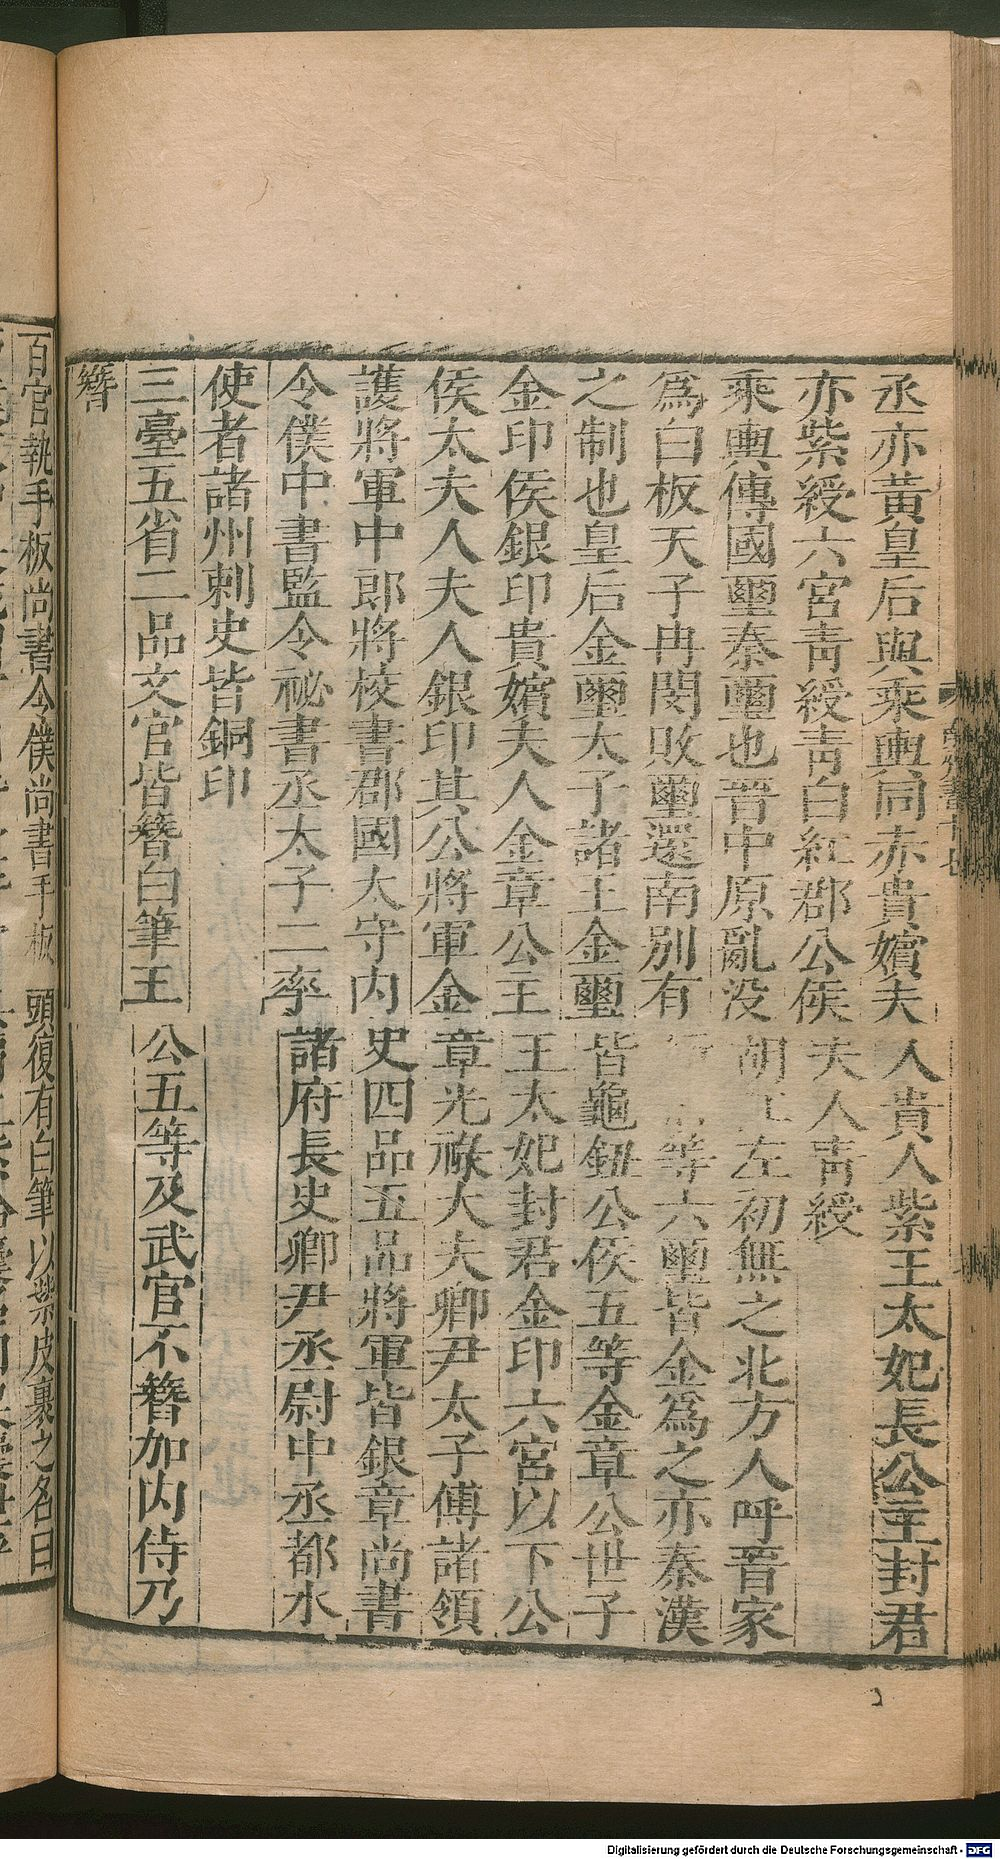 丞亦黃皇后與乘輿同赤貴嬪夫人貴人紫王太妃長公主封君
亦紫綬六宮靑綬靑白紅郡公侯夫人靑綬
乘輿傳國璽秦璽也晉中原亂沒胡江左初無之北方人呼晉家
爲白板天子冉閔敗璽還南別有等六璽皆金爲之亦秦漢
之制也皇后金璽太子諸王金璽皆龜鈕公侯五等金章公世子
金印侯銀印貴嬪夫人金章公主王太妃封君金印六宮以下公
侯太夫人夫人銀印其公將軍金章光祿大夫卿尹太子傅諸領
護將軍中郎將校書郡國太守內史四品五品將軍皆銀章尚書
令僕中書監令祕書丞太子二率諸府長史卿尹丞尉中丞都水
使者諸州刺史皆銅印
三臺五省二品文官皆簪白筆王公五等及武官不簪加內侍乃
簪
百官執手板尚書令僕尚書手板頭復有白筆以紫皮裹之名曰
Digitalisierung gefördert durch die Deutsche Forschungsgemeinschaft - DFG